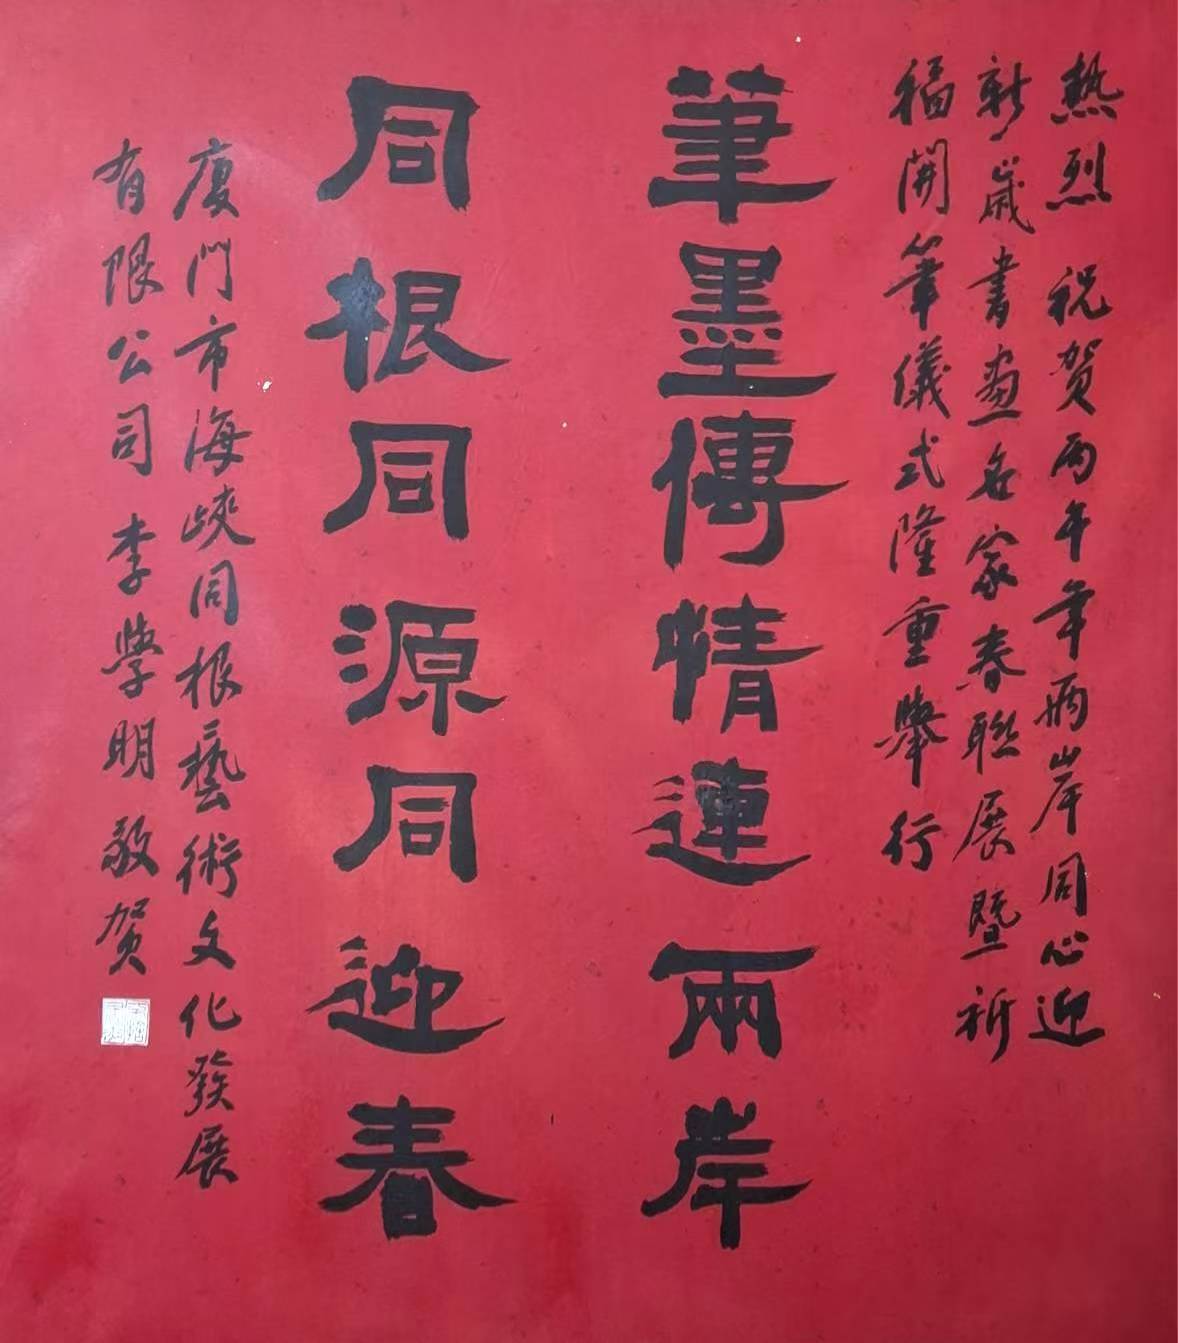 熱烈祝賀丙午年兩岸同心迎
新歲書畫名家春聯展暨祈
福開筆儀式隆重舉行
筆墨傳情連兩岸
同根同源同迎春
廈門市海峽同根藝術文化發展
有限公司李學明敬賀